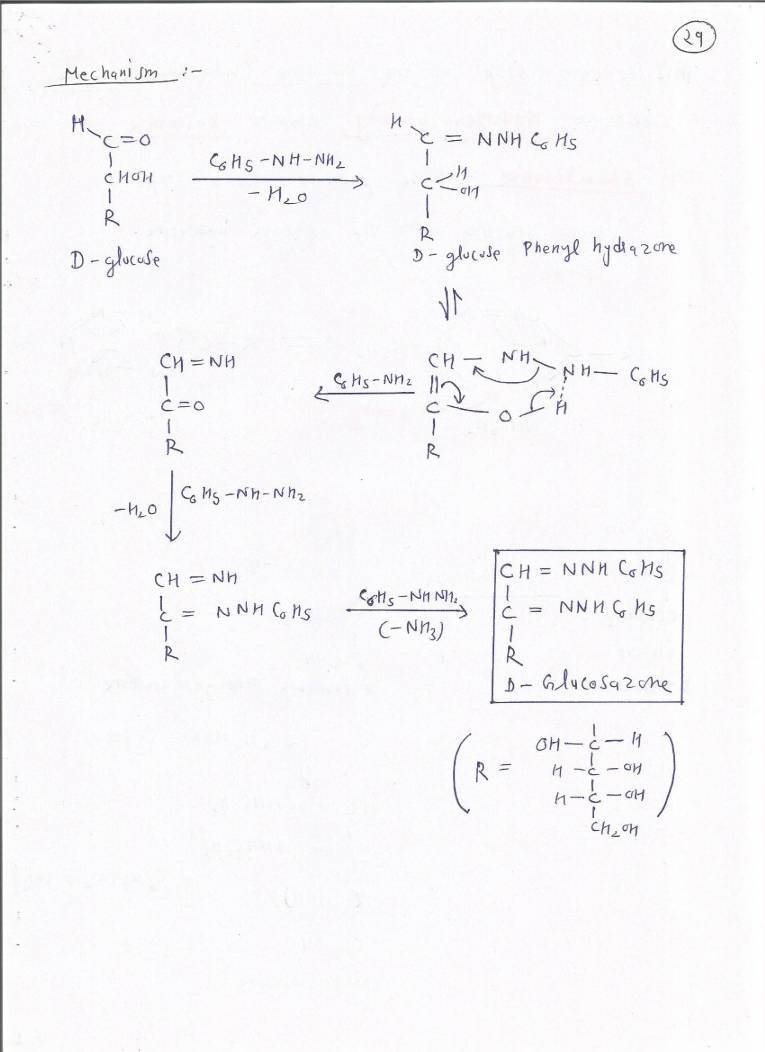 29
Mechanism :-
H
C=O
CHOH
R
D-glucose
C6H5-NH-NH2
-H2O
H
C = NNH C6H5
C H
OH
R
D-glucose Phenyl hydrazone
CH = NH
C=O
R
C6H5-NH2
CH - NH NH - C6H5
C - O H
R
-H2O C6H5-NH-NH2
CH = NH
C = NNH C6H5
R
C6H5-NHNH2
(-NH3)
CH = NNH C6H5
C = NNH C6H5
R
D-Glucosazone
R =
OH-C-H
H-C-OH
H-C-OH
CH2OH